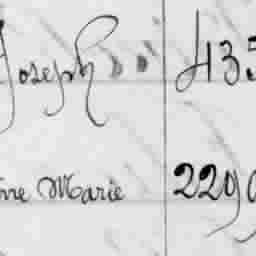 Joseph 435
Marie 229